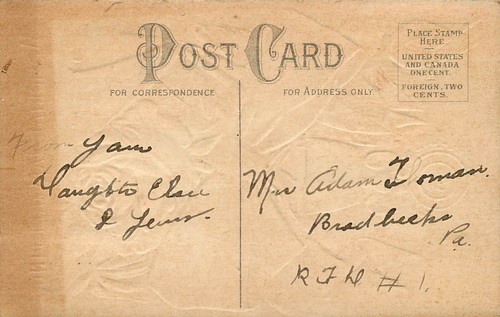 POST CARD
FOR CORRESPONDENCE
FOR ADDRESS ONLY.
PLACE STAMP
HERE
UNITED STATES
AND CANADA
ONE CENT.
FOREIGN, TWO
CENTS.
From Your
Daughter Elsie
&
Mr Adam
Brodbecks
Pa.
R F D # 1.